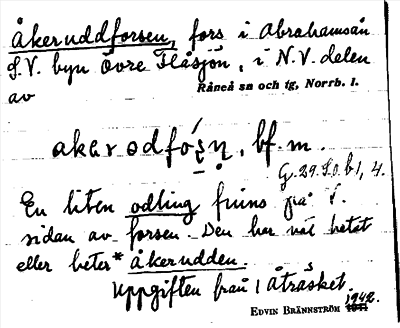 åkeruddforsen, fors i Abrahamsån
S.V. byn Övre Flåsjön, i N.V. delen
av Råneå sn och tg, Norrb. l.
akerodfo bf. m.
En liten odling finns på S.
sidan av forsen. Den har väl hetat
eller heter * åkerudden.
Uppgiften från 1 Åträsket.
EDVIN BRÄNNSTRÖM 1942.